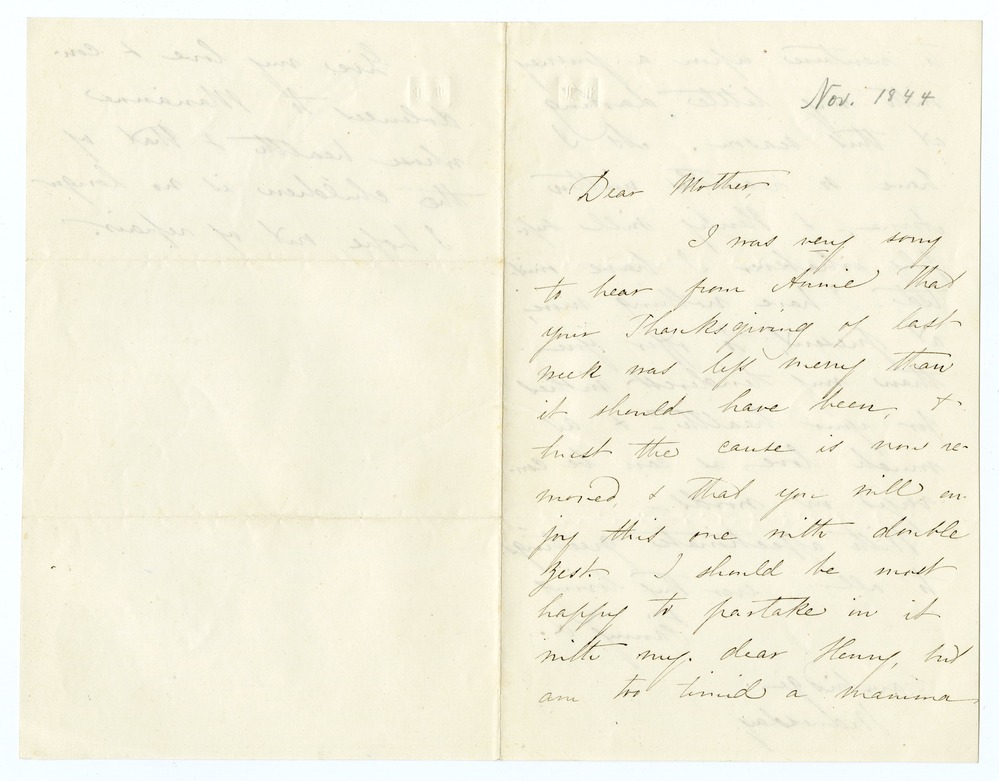 Nov. 1844
Dear Mother,
I was very sorry
to hear from Annie that
your Thanksgiving of last
week was less merry than
it should have been, &
trust the cause is now re-
moved, & that you will en-
joy this one with double
zest. I should be most
happy to partake in it
with my dear Henry, but
am too timid a mamma